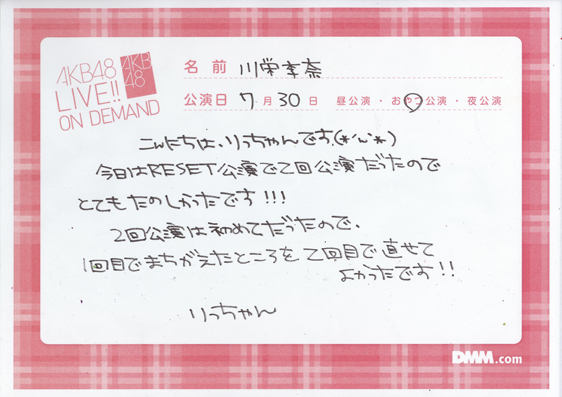 AKB48
LIVE!!
ON DEMAND
AKB
48
名前 川栄李奈
公演日 7月30日 昼公演・おやつ公演・夜公演
こんにちは、りっちゃんです(*'ω'*)
今日はRESET公演で2回公演だったので
とてもたのしかったです!!!
2回公演は初めてだったので、
1回目でまちがえたところを2回目で直せて
よかったです!!
りっちゃん
DMM.com